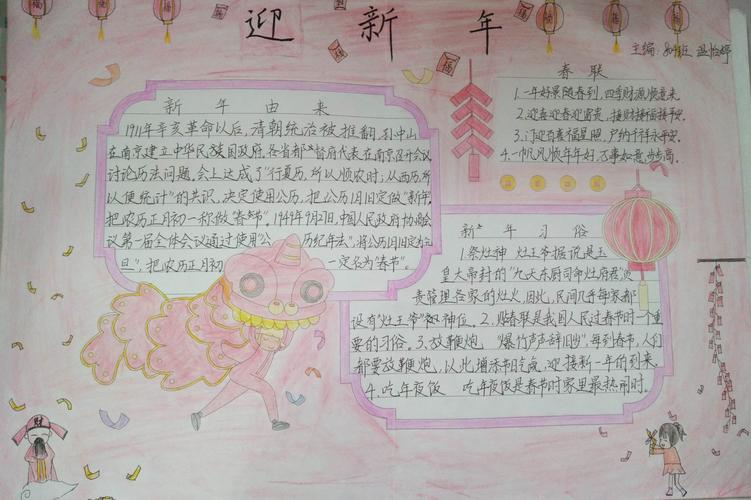 迎新年
主编: 温怡婷
春联
1.一年好景随春到,四季财源顺意来
2.迎喜迎春迎富贵,接财接福接平安.
3.门迎百福福星照,户纳千祥永平安.
4.一帆风顺年年好,万事如意步步高.
新年由来
1911年辛亥革命以后,清朝统治被推翻,孙中山
在南京建立中华民族国政府.各省都督府代表在南京召开会议
讨论历法问题,会上达成了"行夏历,所以顺农时;从西历所
以便统计"的共识,决定使用公历,把公历1月1日定做"新年",
把农历正月初一称做"春节".1949年9月27日,中国人民政府协商会
议第一届全体会议通过使用"公历纪年法",将公历1月1日定为"元
旦",把农历正月初一定名为"春节".
新年习俗
1.祭灶神 灶王爷据说是玉
皇大帝封的"九天东厨司命灶府君",负
责管理各家的灶火,因此,民间几乎每家都
设有"灶王爷"神位.2.贴春联是我国人民过春节时一个重
要的习俗.3.放鞭炮 爆竹声声辞旧岁",每到春节,人们
都要放鞭炮,以此增添节日气氛,迎接新一年的到来.
4.吃年夜饭 吃年夜饭是春节时家里最热闹时.
福
福
福
福
福
财